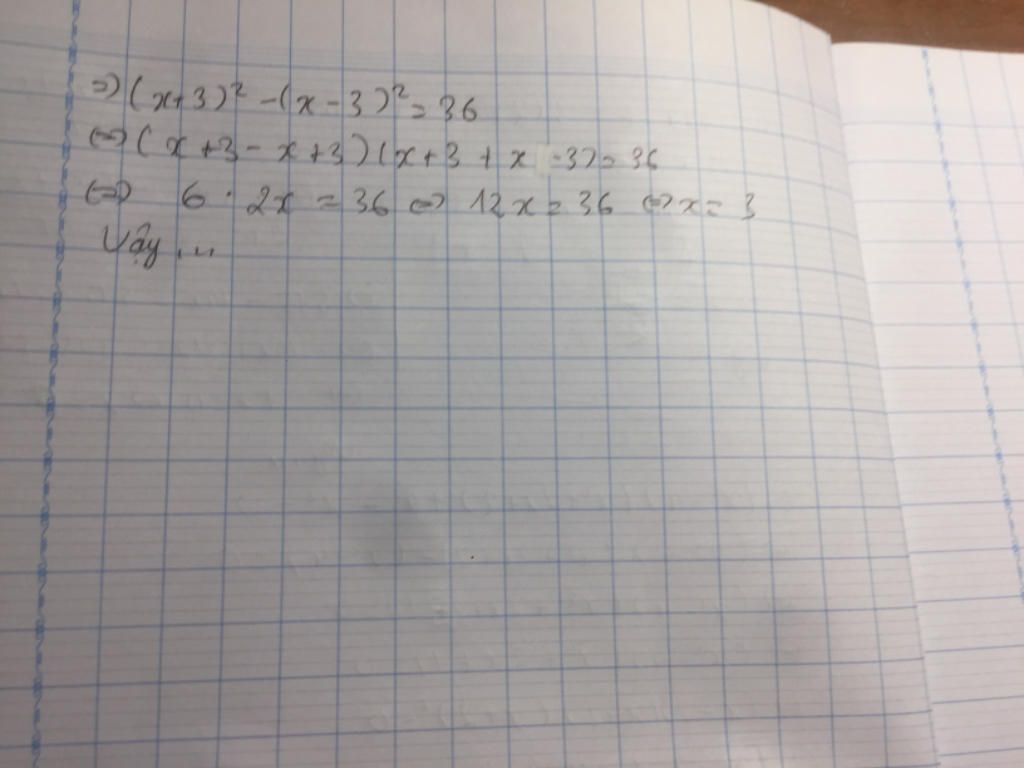 ⇒) (x+3)² - (x-3)² = 36
⇔) (x+3-x+3)(x+3+x-3) = 36
⇔) 6 . 2x = 36 ⇔ 12x = 36 ⇔ x = 3
Vậy ...